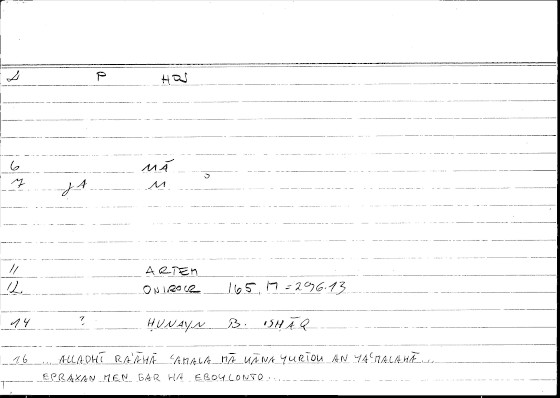 P HQ
6 MĀ
7 JA M
11 ARTEM
12 ONIROCR 165,17 = 296.13
14 ? HUNAYN B. ISHĀQ
16 ... ALLADHĪ RA'ĀHĀ ʿAMALA MĀ KĀNA YURIDU AN YAʿMALAHĀ...
EPRAXAN MEN GAR HA EBOULONTO...